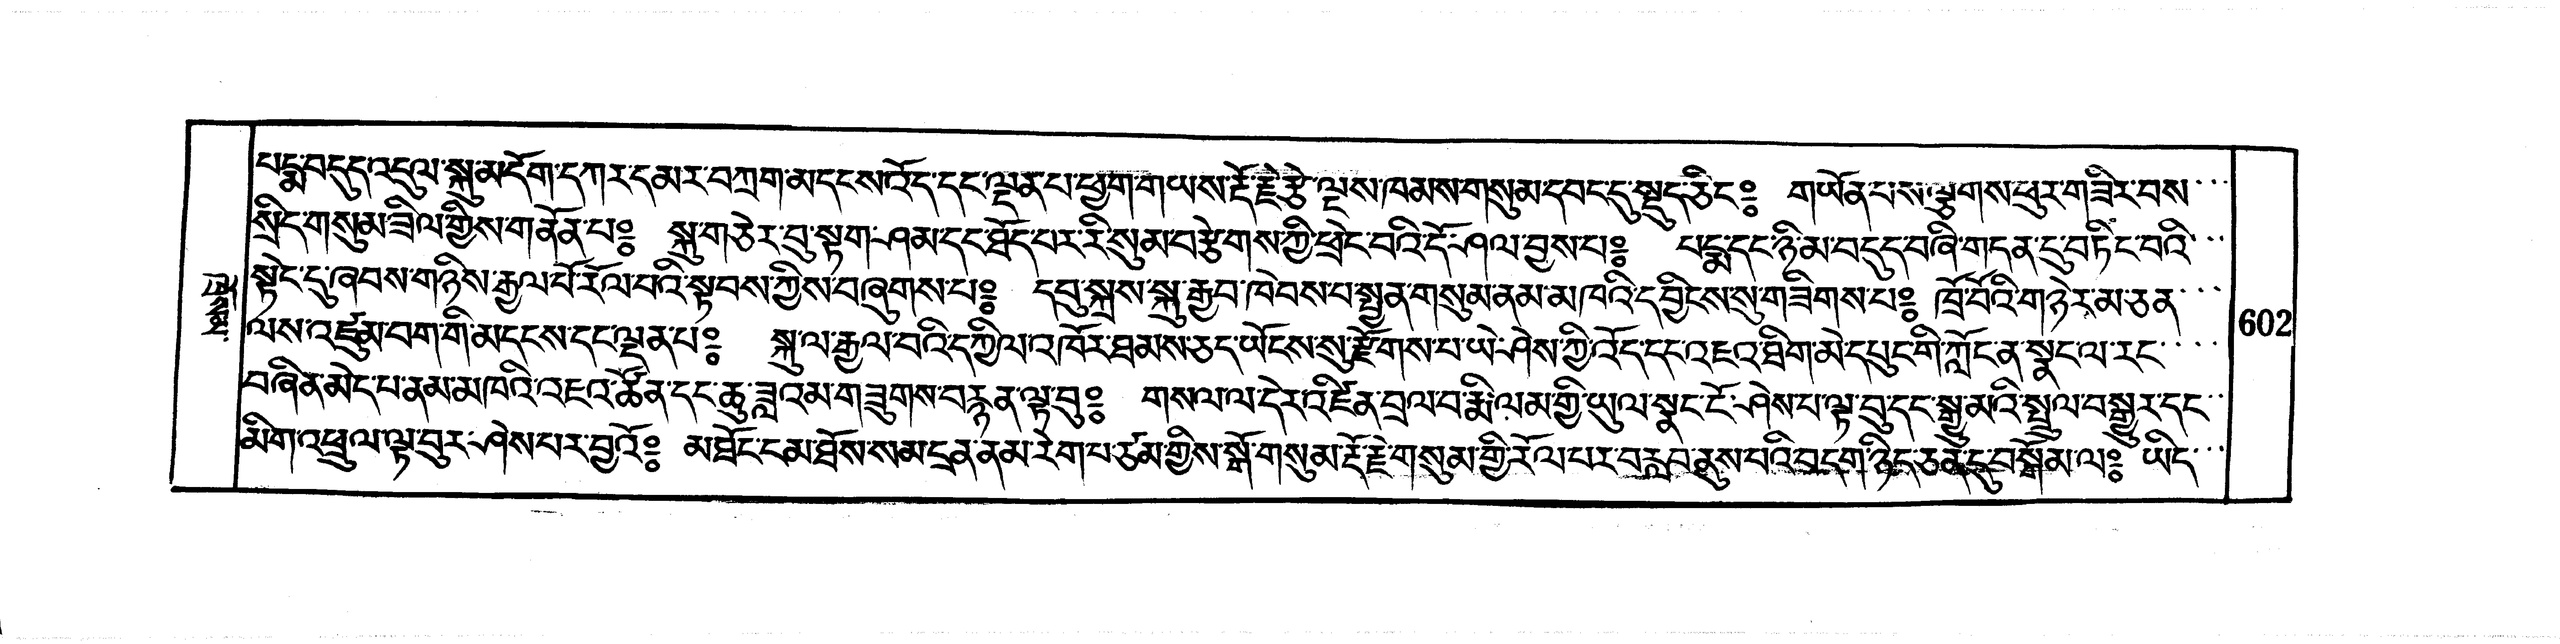 པདྨ་བདུད་འདུལ་སྐུ་མདོག་དཀར་དམར་བཀྲག་མདངས་འོད་དང་ལྡན་པ་ཕྱག་གཡས་རྡོ་རྗེ་རྩེ་ལྔས་ཁམས་གསུམ་དབང་དུ་སྡུད་ཅིང༔ གཡོན་པས་ལྕགས་ཕུར་གཟིར་བས་
སྲིད་གསུམ་ཟིལ་གྱིས་གནོན་པ༔ སྐུ་གཅེར་བུ་སྟག་ཤམ་དང་ཐོད་པར་རི་སུམ་བརྩེགས་ཀྱི་ཕྲེང་བའི་དོ་ཤལ་བྱས་པ༔ པདྨ་དང་ཉི་མ་བདུད་བཞི་གདན་དུ་བཏིང་བའི་
སྟེང་དུ་ཞབས་གཉིས་རྒྱལ་པོ་རོལ་བའི་སྟབས་ཀྱིས་བཞུགས་པ༔ དབུ་སྐྲས་སྐུ་རྒྱབ་ཁེབས་པ་སྤྱན་གསུམ་ནམ་མཁའི་དབྱིངས་སུ་གཟིགས་པ༔ ཁྲོ་བོའི་གཉེར་མ་ཅན་
ལས་འཛུམ་བག་གི་མདངས་དང་ལྡན་པ༔ སྐུ་ལ་རྒྱལ་བའི་དཀྱིལ་འཁོར་ཐམས་ཅད་ཡོངས་སུ་རྫོགས་པ་ཡེ་ཤེས་ཀྱི་འོད་དང་འཇའ་ཐིག་མེ་དཔུང་གི་ཀློང་ན་སྣང་ལ་རང་
བཞིན་མེད་པ་ནམ་མཁའི་འཇའ་ཚོན་དང་ཆུ་ཟླའམ་གཟུགས་བརྙན་ལྟ་བུ༔ གསལ་ལ་དེར་འཛིན་བྲལ་བ་རྨི་ལམ་གྱི་ཡུལ་སྣང་ངོ་ཤེས་པ་ལྟ་བུ་དང་སྒྱུ་མའི་སྤྲུལ་བསྒྱུར་དང་
མིག་འཕྲུལ་ལྟ་བུར་ཤེས་པར་བྱའོ༔ མཐོང་ངམ་ཐོས་སམ་དྲན་ནམ་རེག་པ་ཙམ་གྱིས་སྒོ་གསུམ་རྡོ་རྗེ་གསུམ་གྱི་རོལ་པར་བརླབ་ནུས་པའི་བདག་ཉིད་ཅན་དུ་བསྒོམ་ལ༔ ཡིད་
602